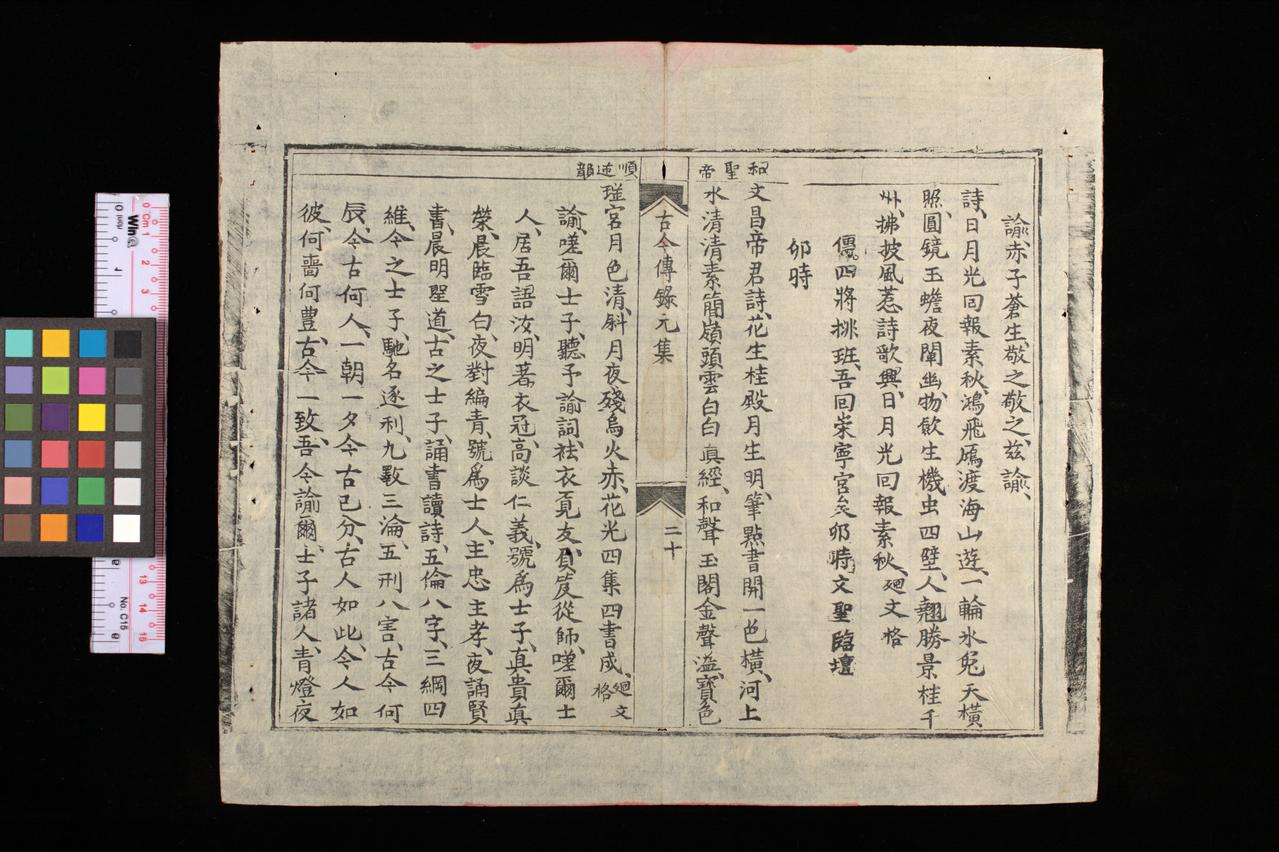 諭、赤子蒼生、敬之敬之、兹諭、
詩、日月光囘報素秋、鴻飛鴈渡海山遊、一輪氷兔天橫
照、圓鏡玉蟾夜闡幽、物飲生機虫四壁、人翹勝景桂千
州、拂披風惹詩歌興、日月光囘報素秋、廻文格
儑、四將排班、吾回崇寧宮矣、卯時、文聖臨壇
卯時
和聖帝
文昌帝君詩、花生桂殿月生明、筆㸃書開一色橫、河上
水清清素簡、嶺頭雲白白眞經、和聲玉閣金聲溢、寶色
古今傳錄元集
二十
順迹部
瑳宮月色清、斜月夜殘烏火赤、花光四集四書成、廻文格
諭、嗟爾士子、聽予諭詞、袪衣覓友、負笈從師、嗟爾士
人、居吾語汝、明著衣冠、高談仁義、號爲士子、真貴真
榮、晨臨雪白、夜對編青、號爲士人、主忠主孝、夜誦賢
書、晨明聖道、古之士子、誦書讀詩、五倫八字、三綱四
維、今之士子、馳名逐利、九斁三淪、五刑八害、古今何
辰、今古何人、一朝一夕、今古已分、古人如此、今人如
彼、何嗇何豊、古今一致、吾今諭爾、士子諸人、青燈夜